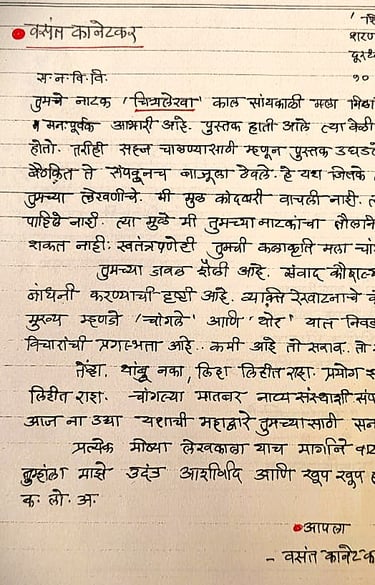 वसंत कानेटकर
' चि
शरण
दूरध
१०
स. न. वि. वि.
तुमचे नाटक 'चित्रलेखा' काल सांयकाळी मला मिळा
मनःपूर्वक आभारी आहे. पुस्तक हाती आले त्या वेळी
होतो. तरीही सहज चाळण्यासाठी म्हणून पुस्तक उघडले
बैठकित ते संपवूनच बाजूला ठेवले. हे यश जितके
तुमच्या लेखणीचे. मी मुळ कादंबरी वाचली नाही.
पाहिले नाही. त्या मुळे मी तुमच्या नाटकांचा तौलनि
शकत नाही. स्वतंत्रपणेही तुमची कलाकृति मला चां
तुमच्या जवळ शैली आहे. संवाद कौशल्य
बांधनी करण्याची दृष्टी आहे. व्यक्ति रेखाटनाचे
मुख्य म्हणजे 'चांगले' आणि 'थोर' यात निवड
विचारांची प्रगल्भता आहे.. कमी आहे तो सराव. तो
तेंव्हा. थांबू नका, लिहा लिहीत राहा. प्रयोग
लिहीत राहा. चांगल्या मातबर नाट्य संस्थाशी संप
आज ना उद्या यशाची महाद्वारे तुमच्यासाठी
प्रत्येक मोठ्या लेखकाला याच मार्गाने
तुम्हांला माझे उदंड आशीर्वाद आणि खूप खूप
क. लो. अ.
आपला
- वसंत कानेटक